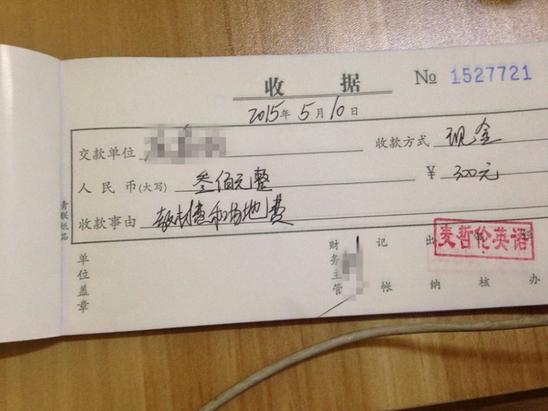 收据 № 1527721
2015年5月10日
交款单位 收款方式 现金
人民币(大写) 叁佰元整 ￥ 300元
收款事由 教材费和场地费
麦哲伦英语
单位盖章 财务主管 记帐 出纳 审核 经办
青联纸品